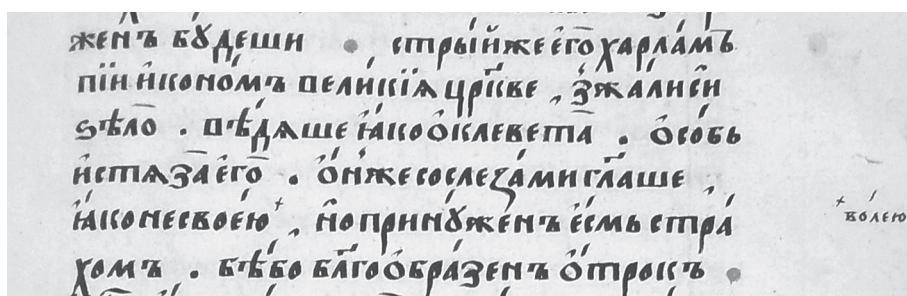 же́нъ бꙋ́деши . стры́й же є҆го̀ харла́мъ
пїи и҆коно́мъ вели́кїѧ цр҃кве , зжа́лиси
ѕѣло̀ . вѣ́дѧше ꙗ҆́ко ѡ҆клевета̀ . ѻ҆со́бь
и҆стѧза̀ є҆го̀ . ѻ҆́нже со слеза́ми гл҃аше ,
ꙗ҆́ко не свое́ю + , но̀ принꙋ́женъ є҆́смь стра́
хомъ . бѣ́ бо бл҃гоѻ҆бра́зенъ ѻ҆́трокъ
+ во́лею